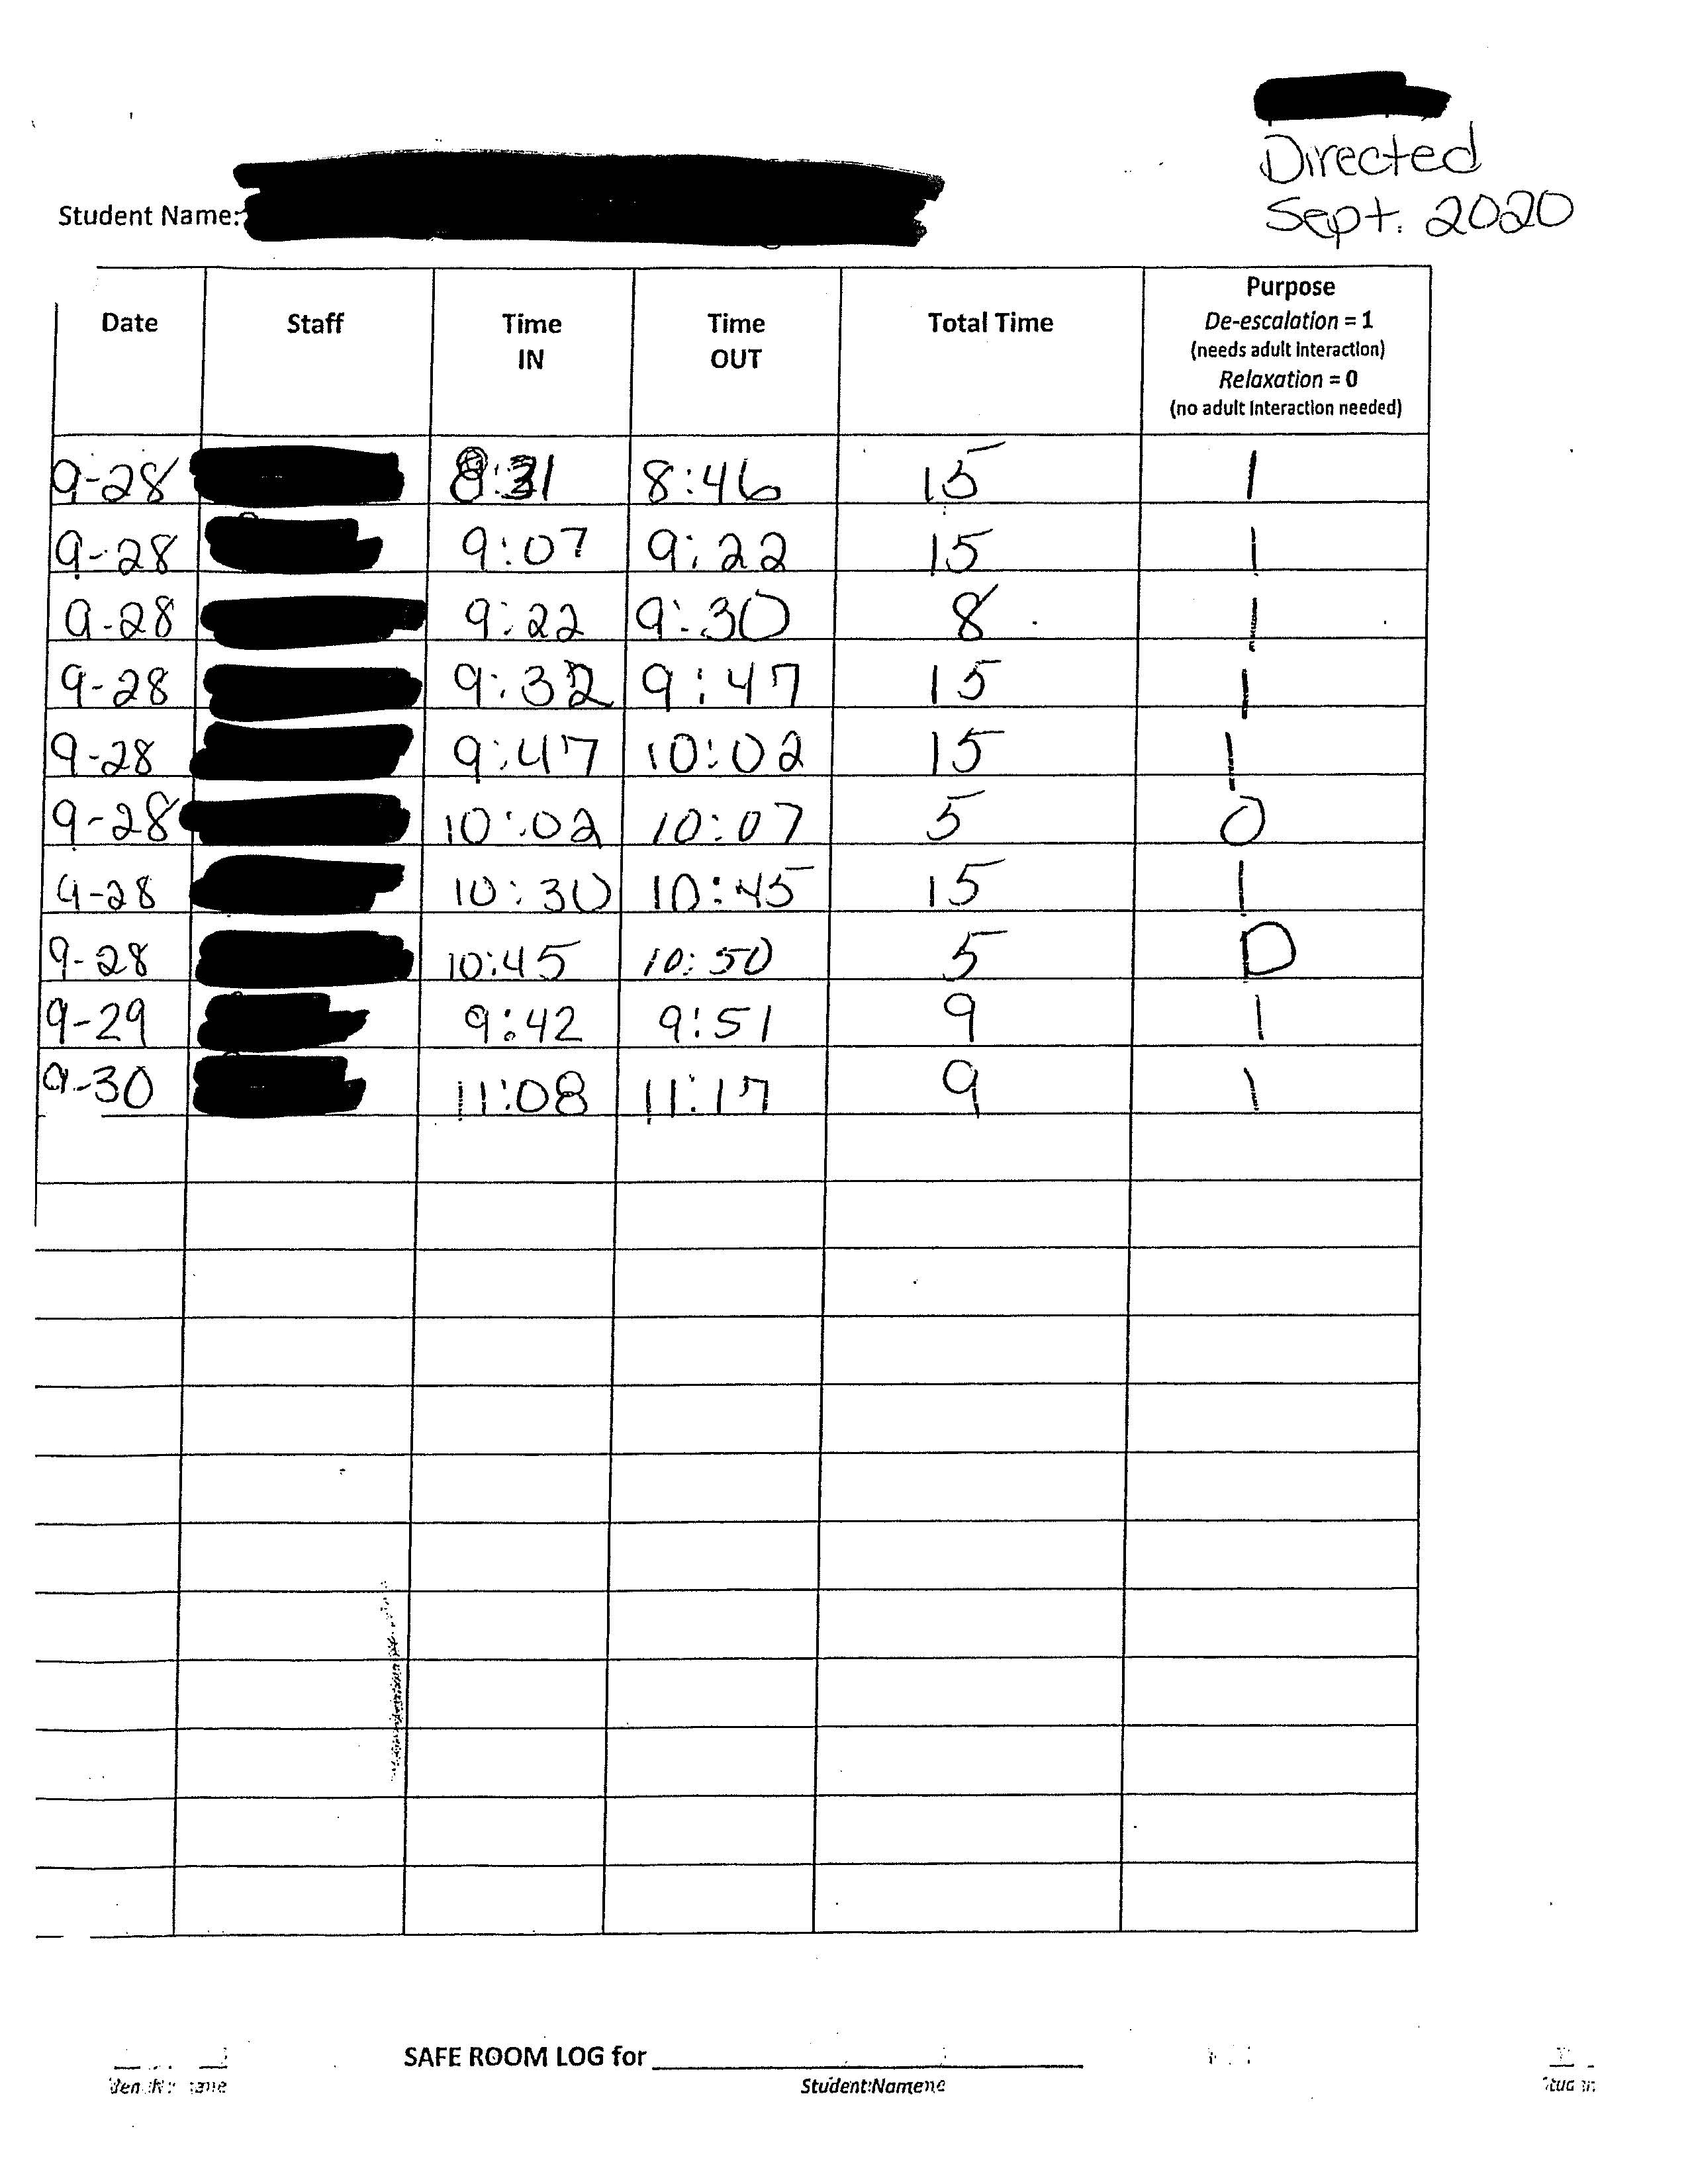 Directed
Sept. 2020
Student Name:
Date Staff Time IN Time OUT Total Time Purpose
De-escalation = 1
(needs adult interaction)
Relaxation = 0
(no adult interaction needed)
9-28 8:31 8:46 15 1
9-28 9:07 9:22 15 1
9-28 9:22 9:30 8 1
9-28 9:32 9:47 15 1
9-28 9:47 10:02 15 1
9-28 10:02 10:07 5 0
9-28 10:30 10:45 15 1
9-28 10:45 10:50 5 0
9-29 9:42 9:51 9 1
9-30 11:08 11:17 9 1
SAFE ROOM LOG for